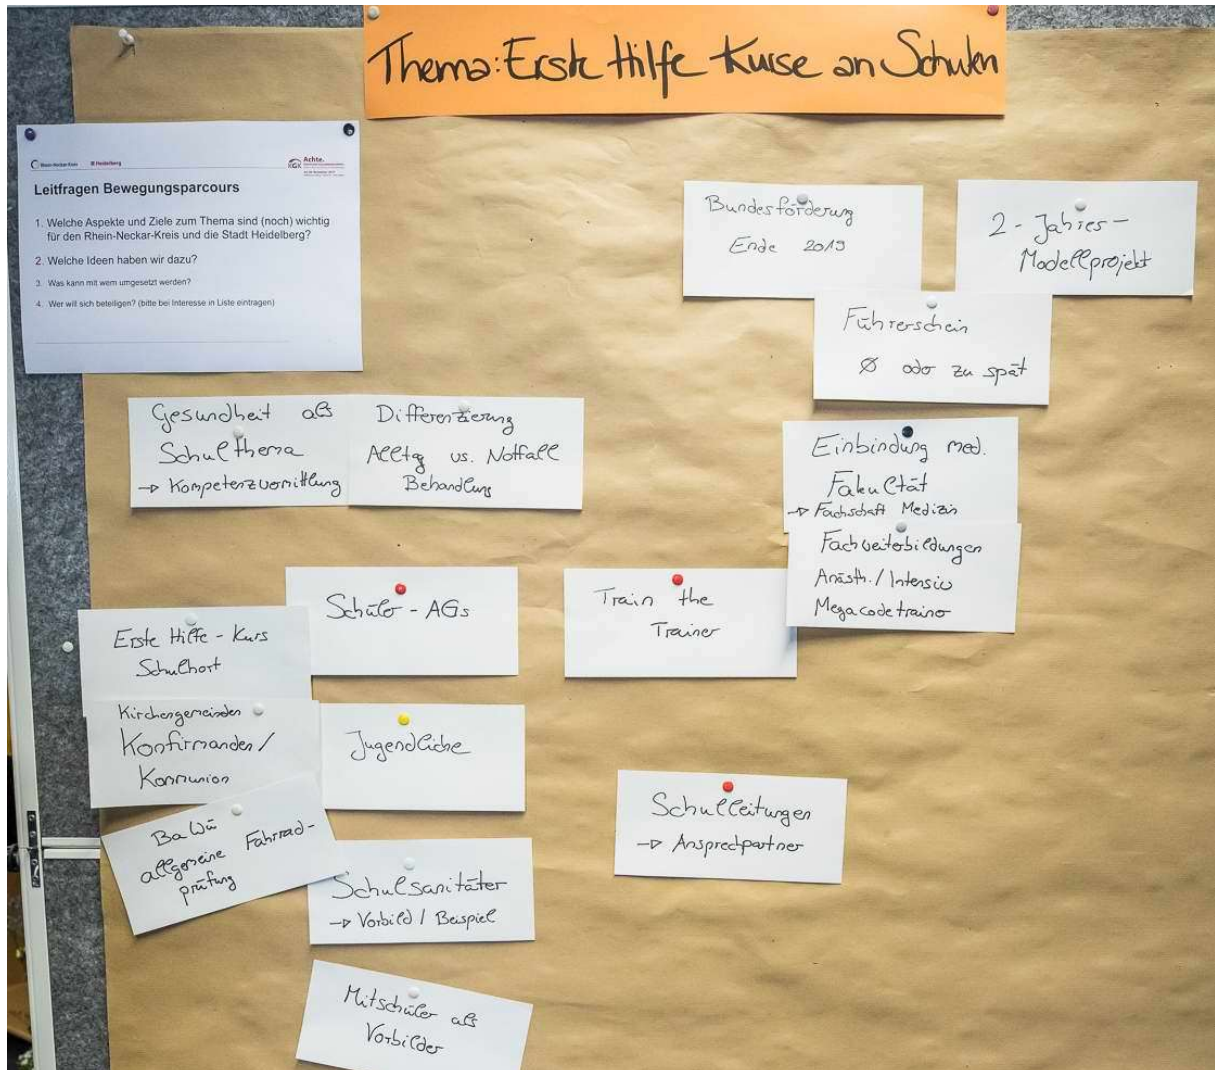 Thema: Erste Hilfe Kurse an Schulen
Rhein-Neckar-Kreis
Heidelberg
KGK
Achte.
Leitfragen Bewegungsparcours
1. Welche Aspekte und Ziele zum Thema sind (noch) wichtig
für den Rhein-Neckar-Kreis und die Stadt Heidelberg?
2. Welche Ideen haben wir dazu?
3. Was kann mit wem umgesetzt werden?
4. Wer will sich beteiligen? (bitte bei Interesse in Liste eintragen)
Bundesförderung
Ende 2019
2-Jahres-
Modellprojekt
Führerschein
Ø oder zu spät
Gesundheit als
Schulthema
→ Kompetenzvermittlung
Differenzierung
Alltag vs. Notfall
Behandlung
Einbindung med.
Fakultät
→ Fachschaft Medizin
Fachweiterbildungen
Anästh./Intensiv
Megacodetrainer
Schüler-AGs
Train the
Trainer
Erste Hilfe-Kurs
Schulhort
Kirchengemeinden
Konfirmanden/
Kommunion
Jugendliche
BaWü
allgemeine Fahrrad-
prüfung
Schulsanitäter
→ Vorbild / Beispiel
Schulleitungen
→ Ansprechpartner
Mitschüler als
Vorbilder